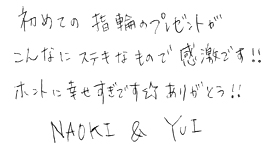 初めての指輪のプレゼントが
こんなにステキなもので感激です!!
ホントに幸せすぎです☆ありがとう!!
NAOKI & YUI